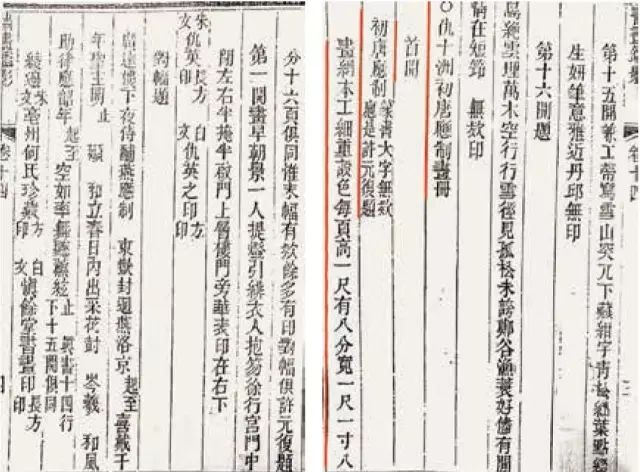 第十五開兼工帶寫雪山突兀下藏紺宇靑松絕葉點綴
生妍筆意雅近丹邱無印
第十六開題
雲埋萬木空行行雪徑見孤松未誇聊谷漁蓑好倩有閒
情在短筇 無欵印
〇仇十洲初唐應制畫冊
首開
初唐應制 隸書大字無欵應是許元復題
畫絹本工細重設色每頁高一尺有八分寬一尺一寸八
卷十四
分十六頁俱同惟末幅有欵餘多有印對幅俱許元復題
第一開畫早朝景一人提燈引緋衣人抱笏徐行宮門中
閉左右半掩半啟門上層樓門旁華表印在右下
朱文仇英長方印 白文仇英之印方印
對幅題
樓下夜侍酺宴應制 東獄封迴宴洛京 起至喜戴千
年聖主明 止 和立春日內出采花 岑羲 和風
助律應韶年 起至 空如率舞聽薰絃 止 眞書十四行下十五開俱同
朱文亳州何氏珍藏長方印 白文餘堂書畫印長方印
卷十四